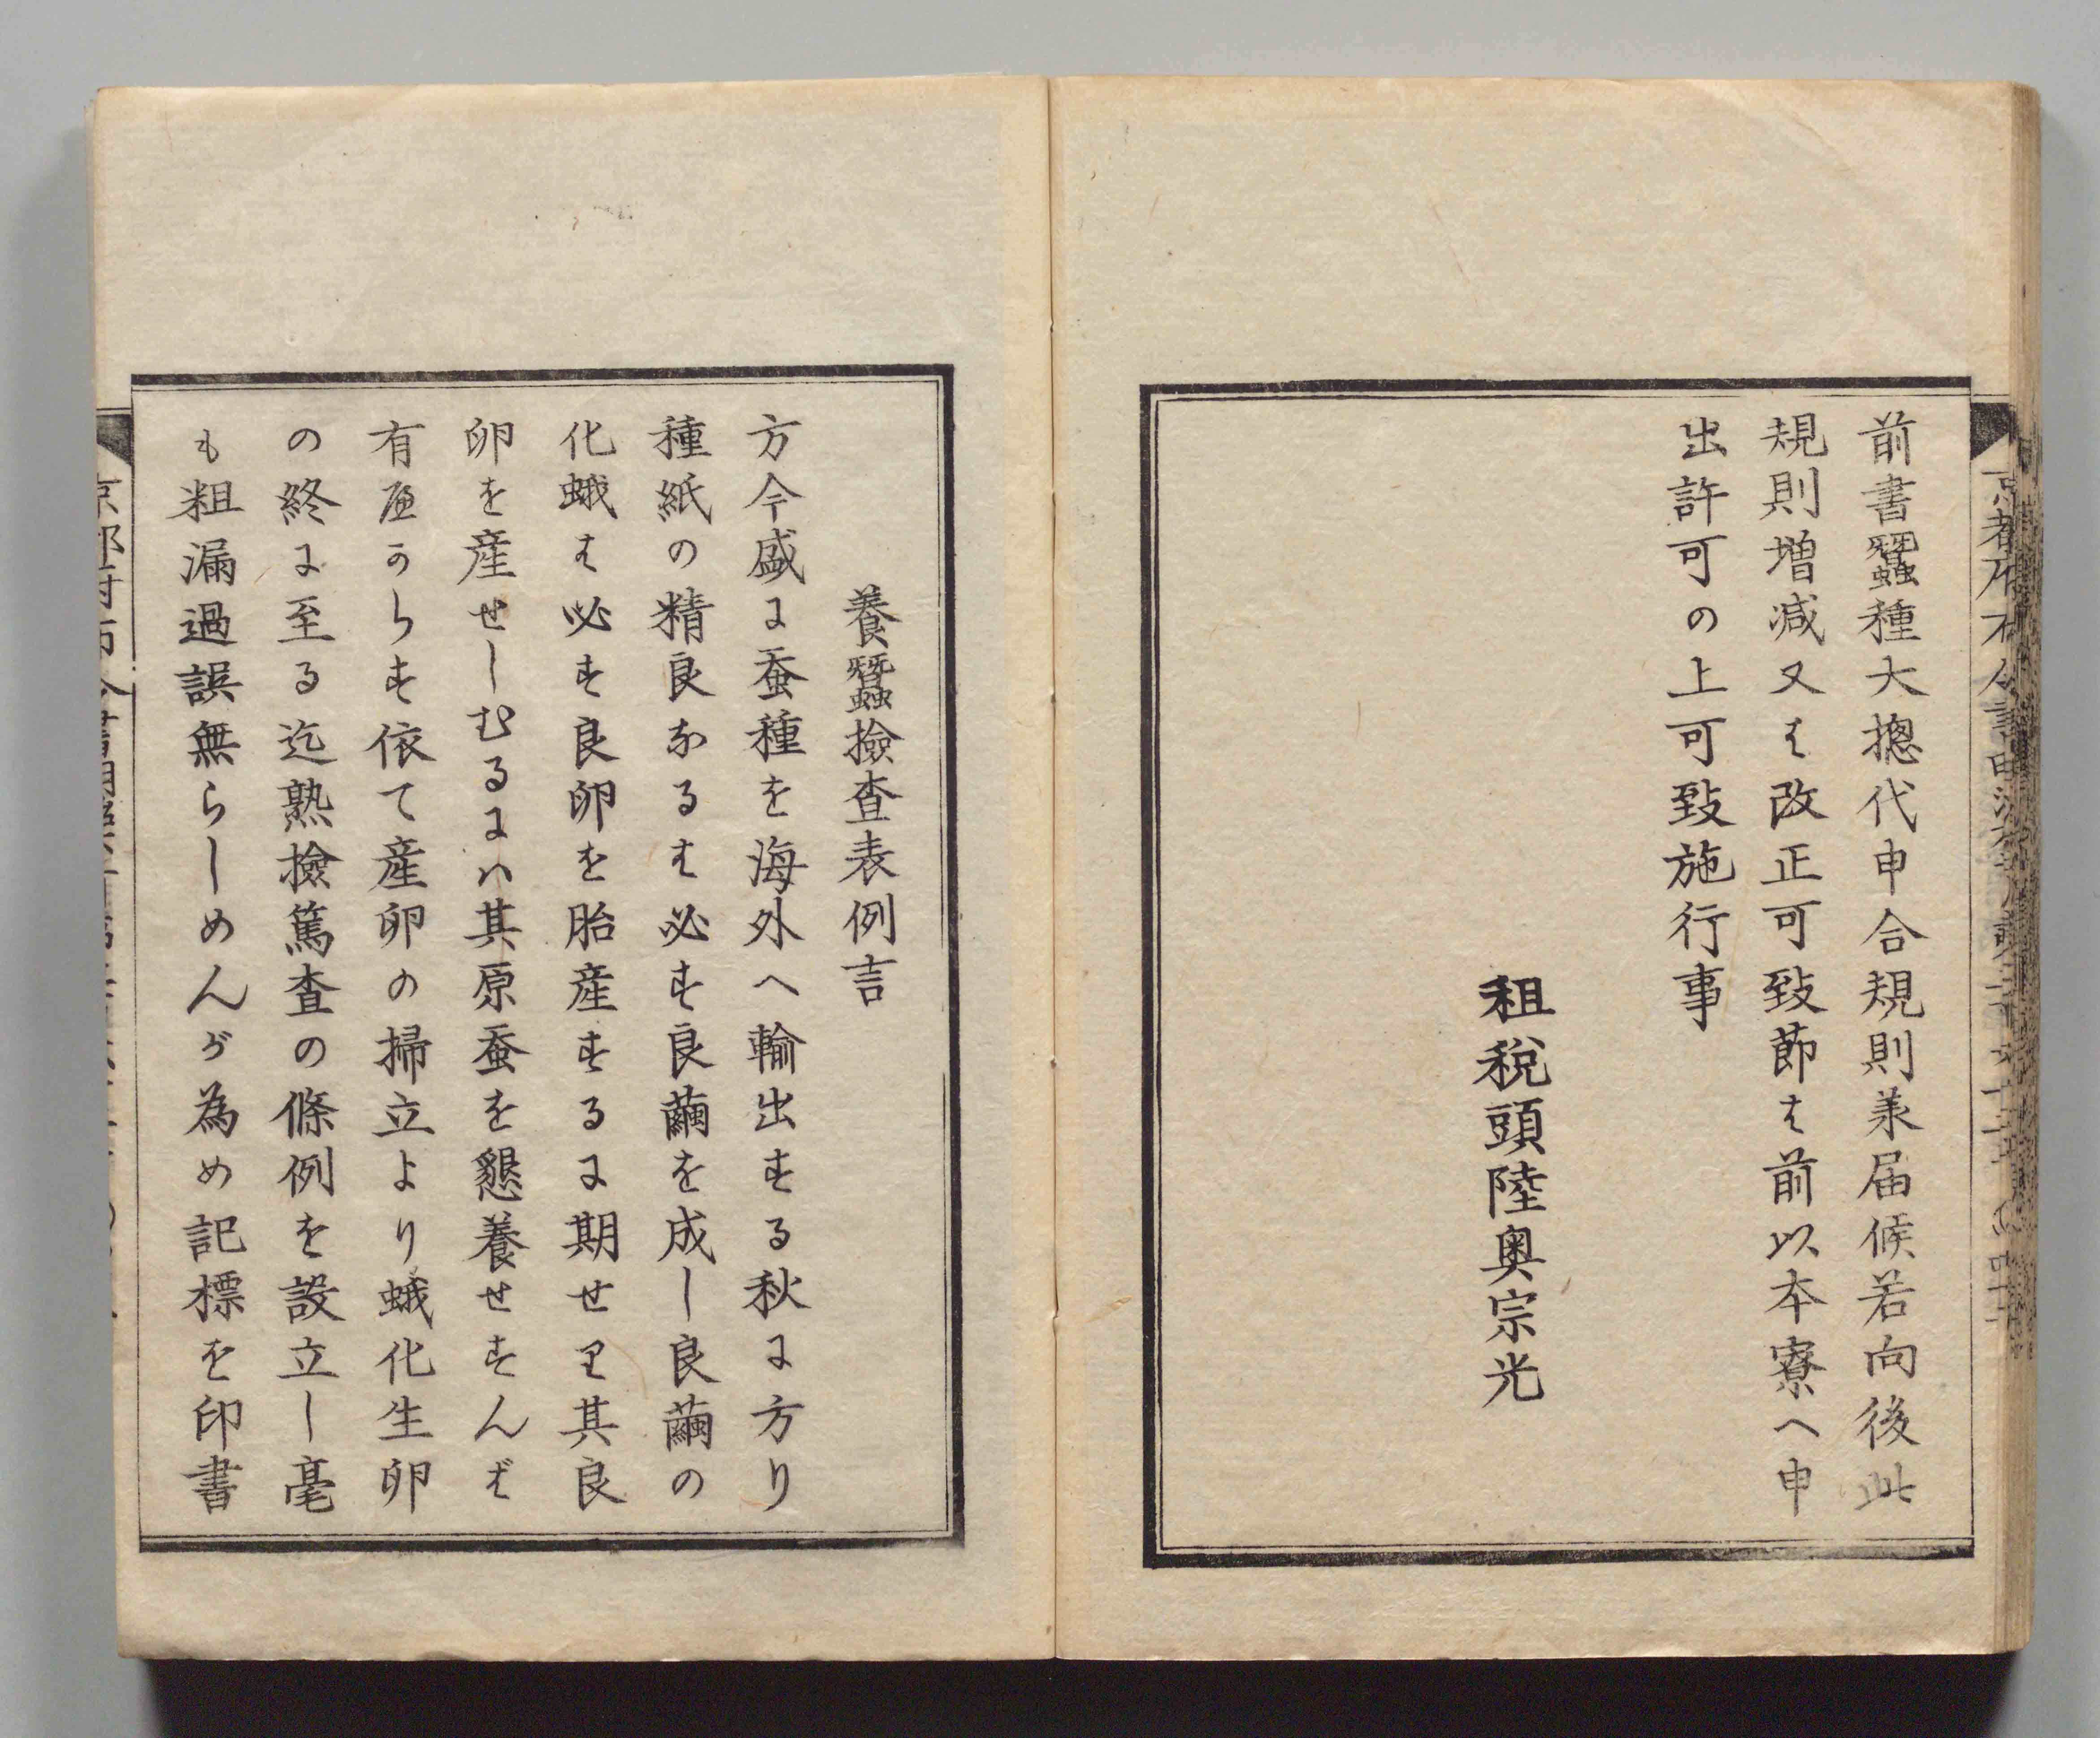 前書蠶種大摠代申合規則承届候若向後此
規則増减又は改正可致節は前以本寮へ申
出許可の上可致施行事
租税頭陸奥宗光
養蠶撿査表例言
方今盛に蚕種を海外へ輸出する秋に方り
種紙の精良なるは必す良繭を成し良繭の
化蛾は必す良卵を胎産するに期せり其良
卵を産せしむるにハ其原蚕を懇養せすんば
有へからす依て産卵の掃立より蛾化生卵
の終に至る迄熟撿篤査の條例を設立し毫
も粗漏過誤無らしめんが為め記標を印書